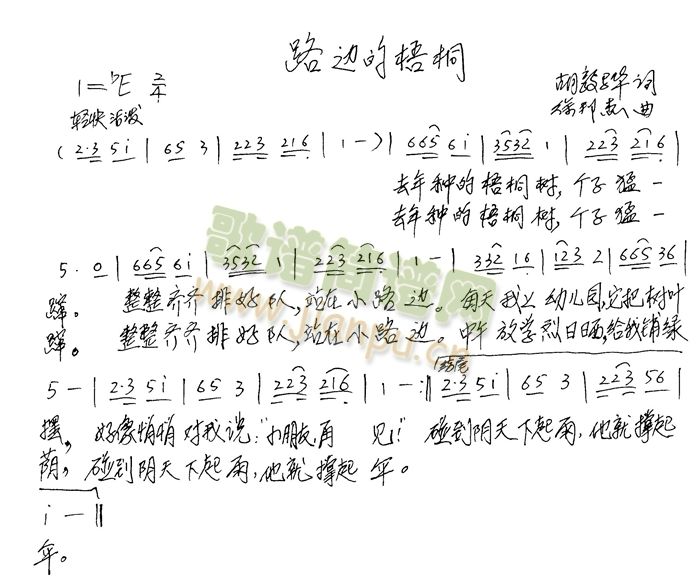 路边的梧桐
1=♭E 2/4
胡敦骅 词
轻快活泼
徐邦杰 曲
( 2·3 5i | 65 3 | 223 216 | 1 - ) | 665 6i | 3532 1 | 223 216 |
去年种的梧桐树，个子猛一
去年种的梧桐树，个子猛一
5·0 | 665 6i | 3532 1 | 223 216 | 1 - | 332 16 | 123 2 | 665 36 |
蹿。 整整齐齐排好队，站在小路边。 每天我上幼儿园，它把树叶
蹿。 整整齐齐排好队，站在小路边。 中午放学烈日晒，给我铺绿
结尾
5 - | 2·3 5i | 65 3 | 223 216 | 1 - :‖ 2·3 5i | 65 3 | 223 56 |
摆， 好像悄悄对我说：“小朋友再 见！” 碰到阴天下起雨，他就撑起
荫， 碰到阴天下起雨，他就撑起 伞。
i - ‖
伞。
歌谱简谱网
www.jianpu.cn